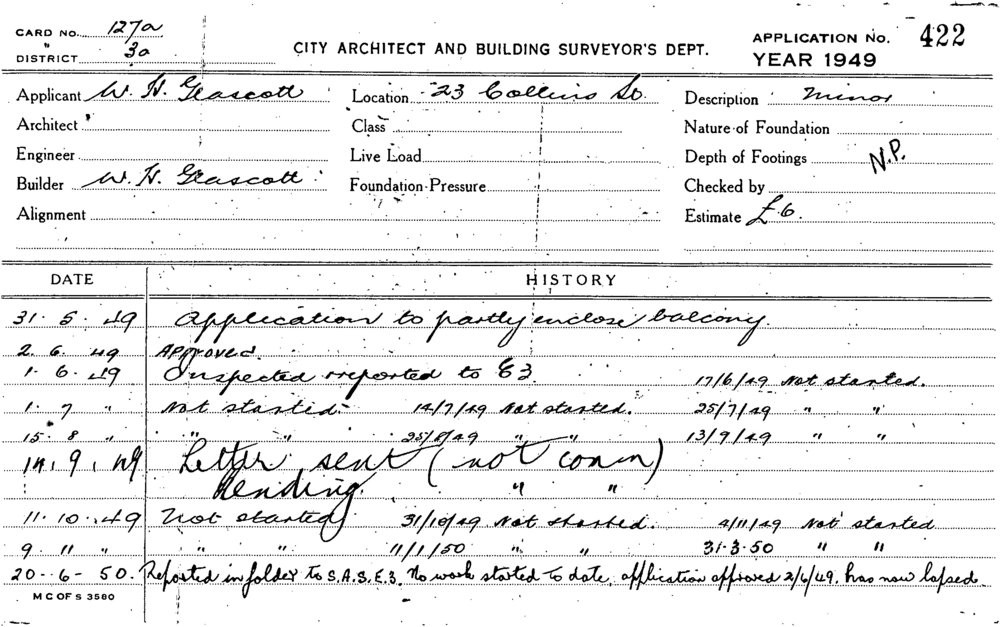 CARD No. 127a
DISTRICT " 3a
CITY ARCHITECT AND BUILDING SURVEYOR'S DEPT.
APPLICATION No. 422
YEAR 1949
Applicant W. H. Geascott Location 23 Collins St. Description Minor
Architect Class Nature of Foundation
Engineer Live Load Depth of Footings N.P.
Builder W. H. Geascott Foundation Pressure Checked by
Alignment Estimate £6.
DATE HISTORY
31. 5. 49 Application to partly enclose balcony.
2. 6. 49 Approved.
1. 6. 49 Inspected & reported to E3. 17/6/49 Not started.
1. 7 " Not started. 14/7/49 Not started. 25/7/49 " "
15. 8 " " " 25/8/49 " " 13/9/49 " "
14. 9. 49 Letter sent (not comm)
Pending. " "
11. 10. 49 Not started 31/10/49 Not started. 4/11/49 Not started
9. 11 " " " 11/1/50 " " 31.3.50 " "
20. 6 - 50. Reported in folder to S.A.S.E3. No work started to date, application approved 2/6/49, has now lapsed.
M C OF S 3580